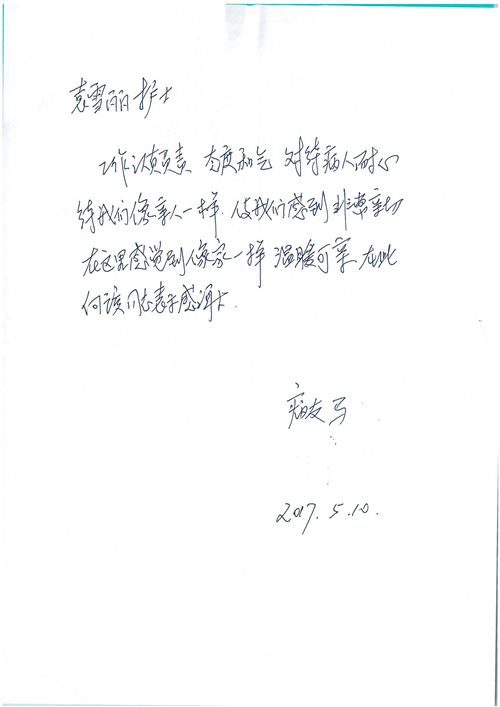 袁雪丽护士
工作认真负责 态度和气 对待病人耐心
待我们像亲人一样.使我们感到非常亲切
在这里感觉到像家一样 温暖可亲 在此
向该同志表示感谢.
病友 马
2017.5.10.